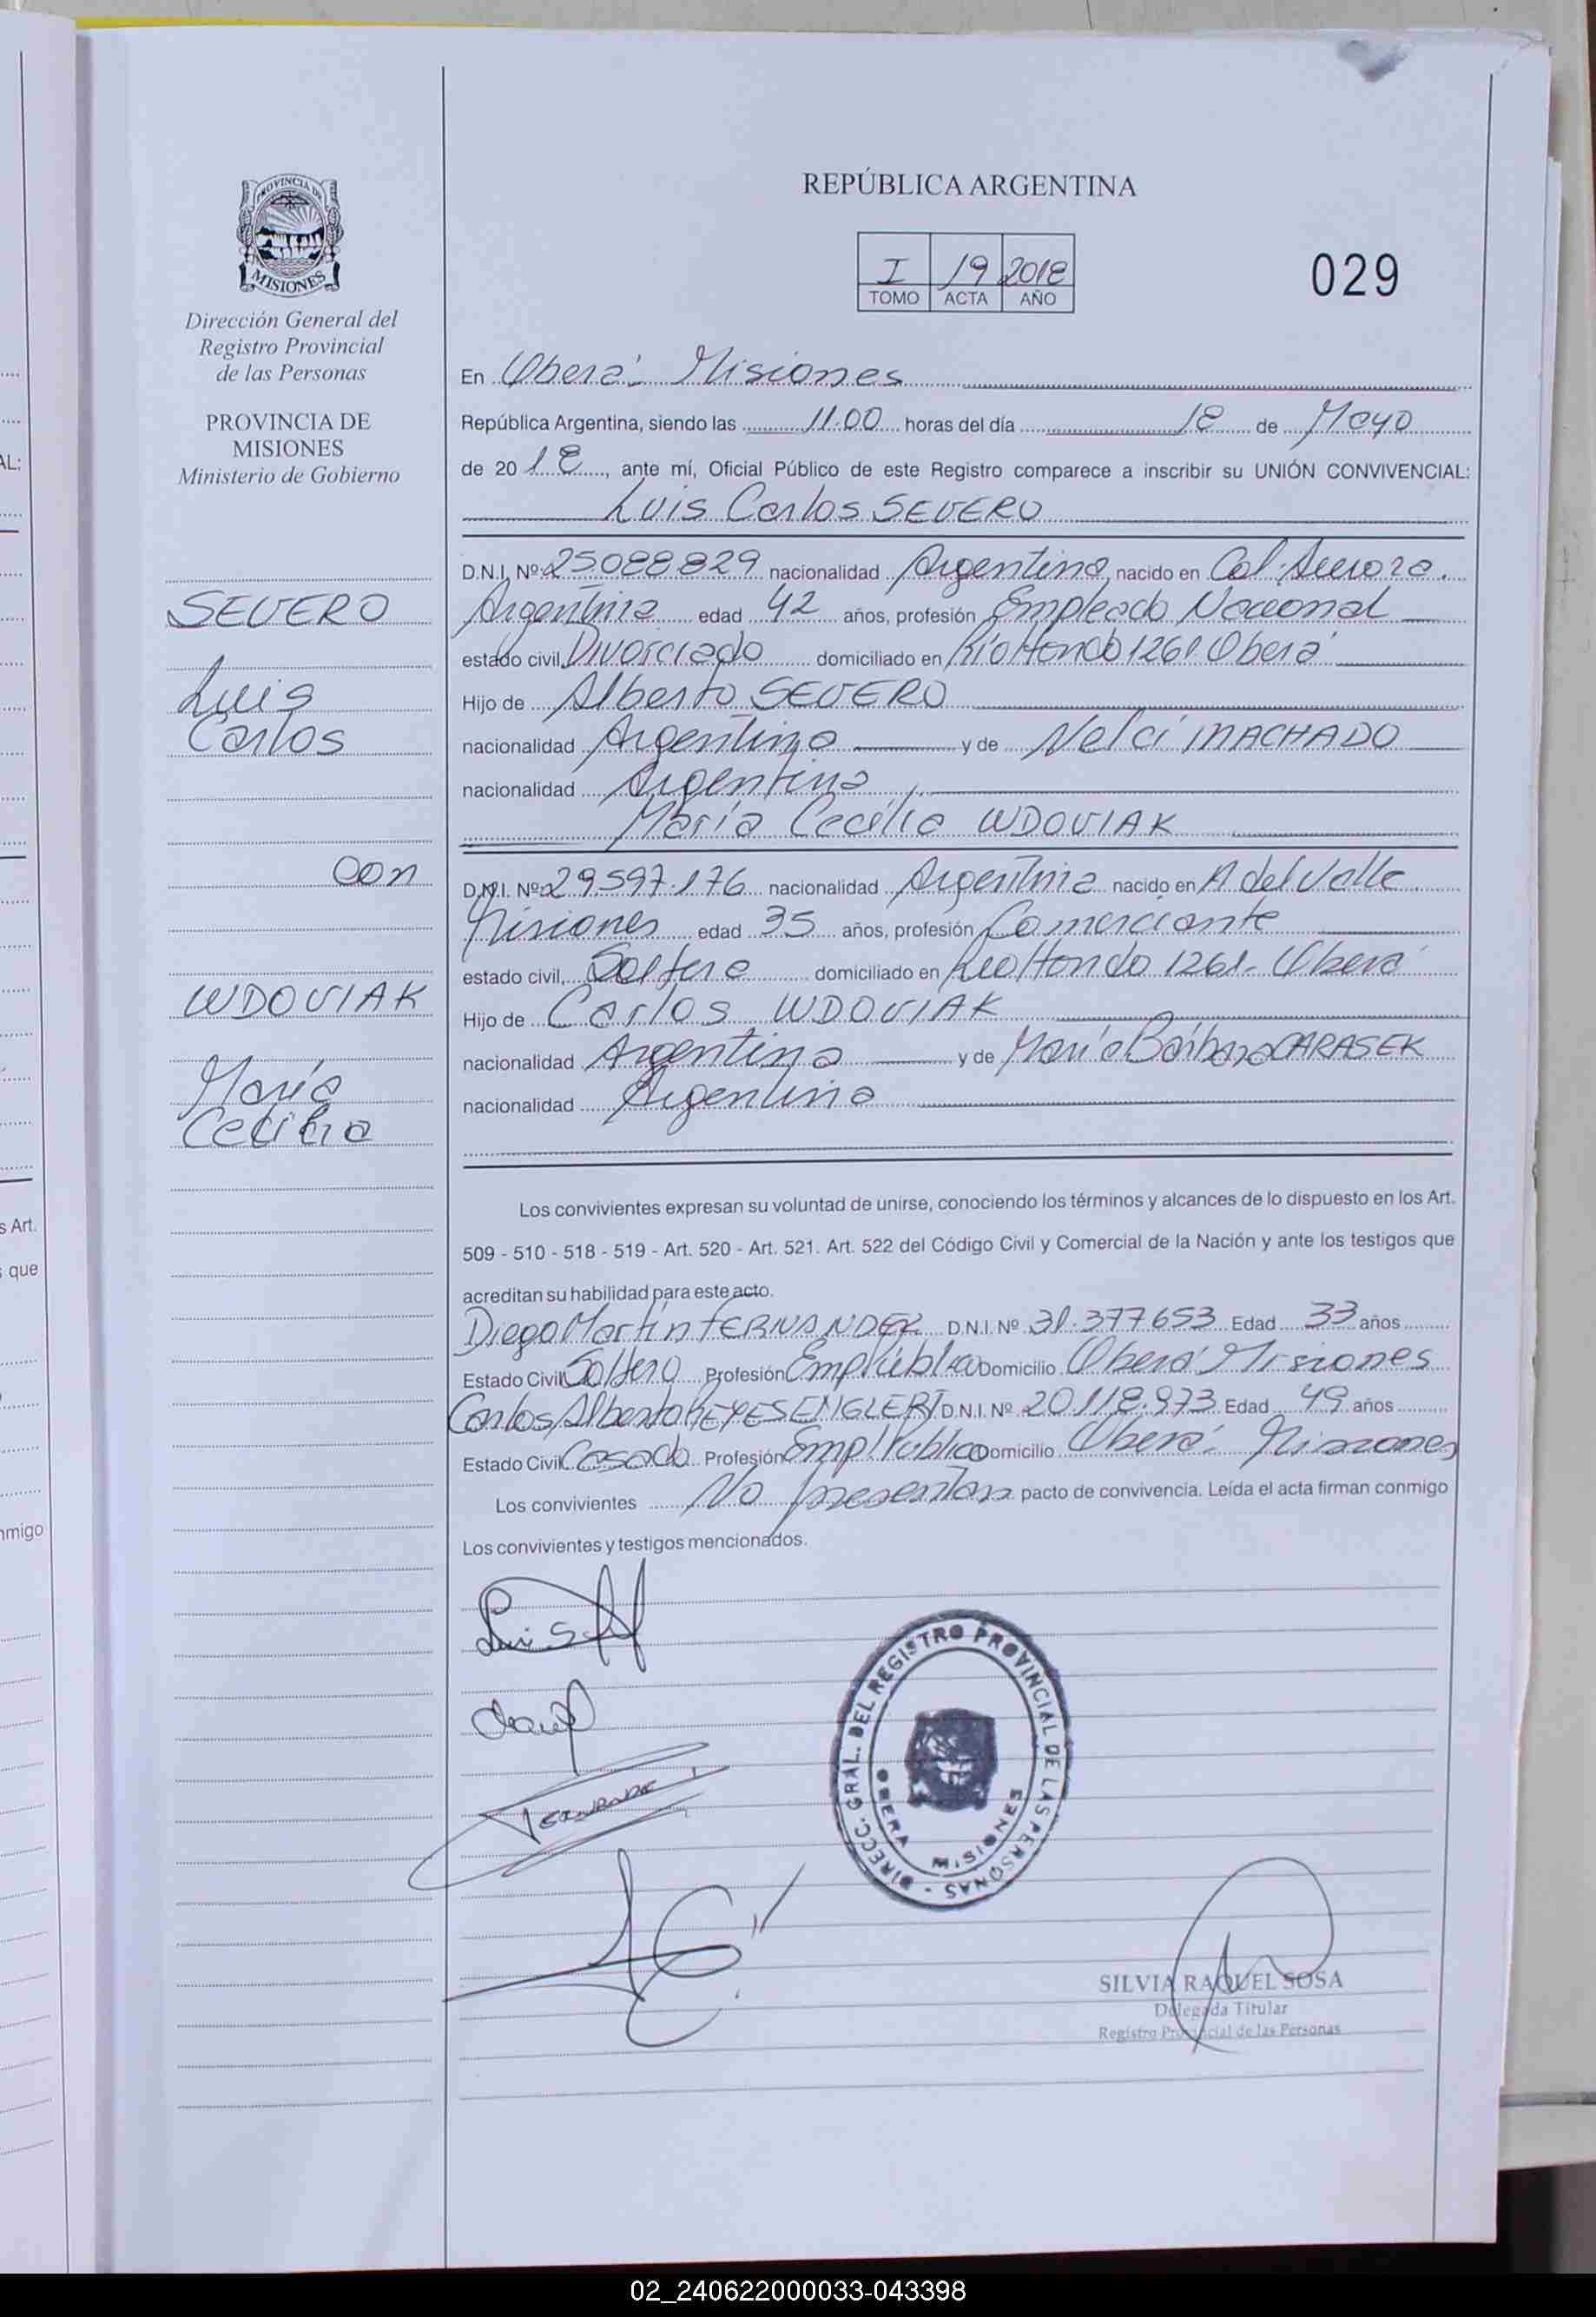 PROVINCIA DE
MISIONES
Dirección General del
Registro Provincial
de las Personas
PROVINCIA DE
MISIONES
Ministerio de Gobierno
SEVERO
Luis
Carlos
con
WDOVIAK
María
Cecilia
REPÚBLICA ARGENTINA
I 19 2018
TOMO ACTA AÑO
029
En Oberá Misiones
República Argentina, siendo las 11.00 horas del día 18 de Mayo
de 2018, ante mí, Oficial Público de este Registro comparece a inscribir su UNIÓN CONVIVENCIAL:
Luis Carlos SEVERO
D.N.I. Nº 25088829 nacionalidad Argentina nacido en Col. Aurora.
Argentina edad 42 años, profesión Empleado Nacional
estado civil Divorciado domiciliado en Río Hondo 1261 Oberá
Hijo de Alberto SEVERO
nacionalidad Argentina y de Nelci MACHADO
nacionalidad Argentina
María Cecilia WDOVIAK
D.N.I. Nº 29.597.176 nacionalidad Argentina nacido en A del Valle
Misiones edad 35 años, profesión Comerciante
estado civil, Soltera domiciliado en Río Hondo 1261- Oberá
Hijo de Carlos WDOVIAK
nacionalidad Argentina y de María Bárbara CARASEK
nacionalidad Argentina
Los convivientes expresan su voluntad de unirse, conociendo los términos y alcances de lo dispuesto en los Art.
509 - 510 - 518 - 519 - Art. 520 - Art. 521. Art. 522 del Código Civil y Comercial de la Nación y ante los testigos que
acreditan su habilidad para este acto.
Diego Martín FERNANDEZ D.N.I. Nº 31.377653 Edad 33 años
Estado Civil Soltero Profesión Emp Público Domicilio Oberá Misiones
Carlos Alberto REYES ENGLERT D.N.I. Nº 20.118.973 Edad 49 años
Estado Civil Casado Profesión Empl Público Domicilio Oberá Misiones
Los convivientes No presentan pacto de convivencia. Leída el acta firman conmigo
Los convivientes y testigos mencionados.
DIRECC. GRAL. DEL REGISTRO PROVINCIAL DE LAS PERSONAS -
OBERA MISIONES
SILVIA RAQUEL SOSA
Delegada Titular
Registro Provincial de las Personas
AL:
s Art.
s que
nmigo
02_240622000033-043398